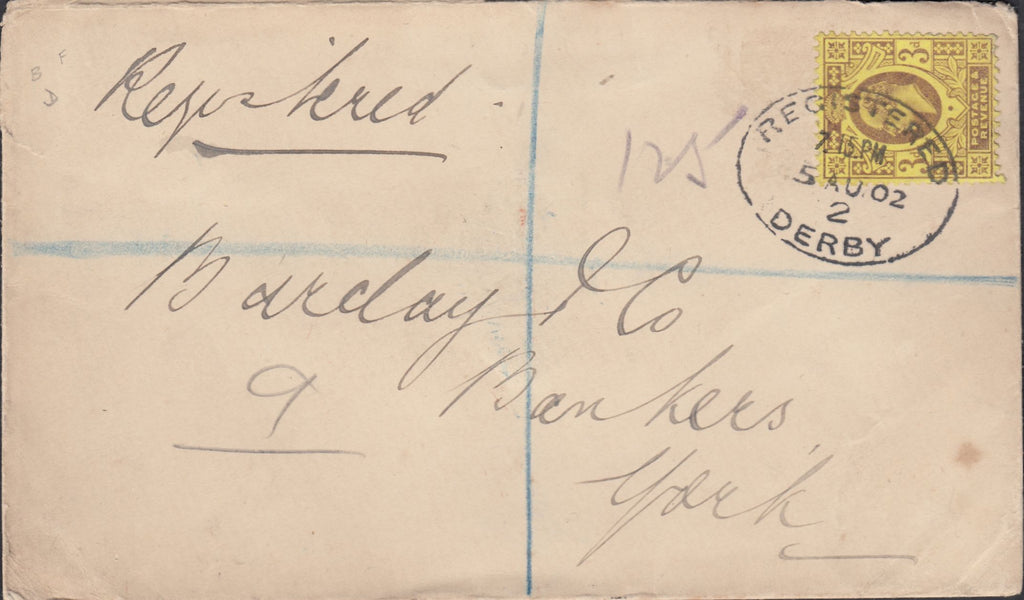 B F
D
Registered
125
3d
POSTAGE & REVENUE
3d
REGISTERED
7.15 PM
5 AU 02
2
DERBY
Barclay & Co
9
Bankers
York